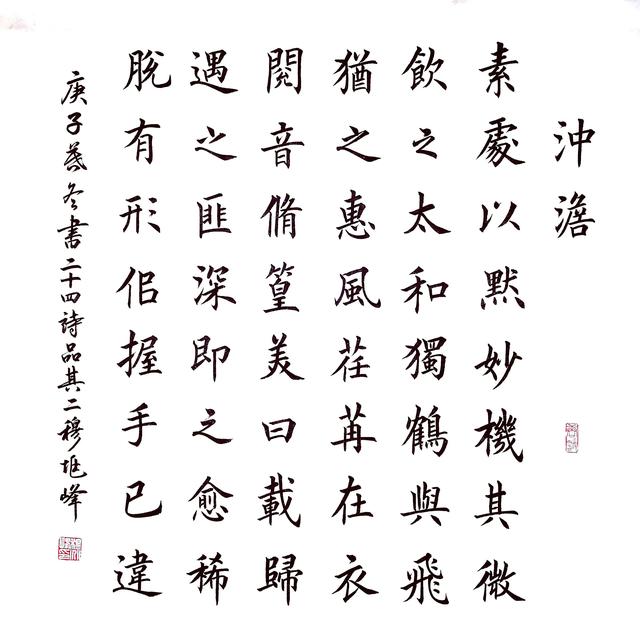 沖澹
素處以默妙機其微
飲之太和獨鶴與飛
猶之惠風荏苒在衣
閱音脩篁美曰載歸
遇之匪深即之愈稀
脫有形佀握手已違
庚子暮冬書二十四詩品其二穆峰